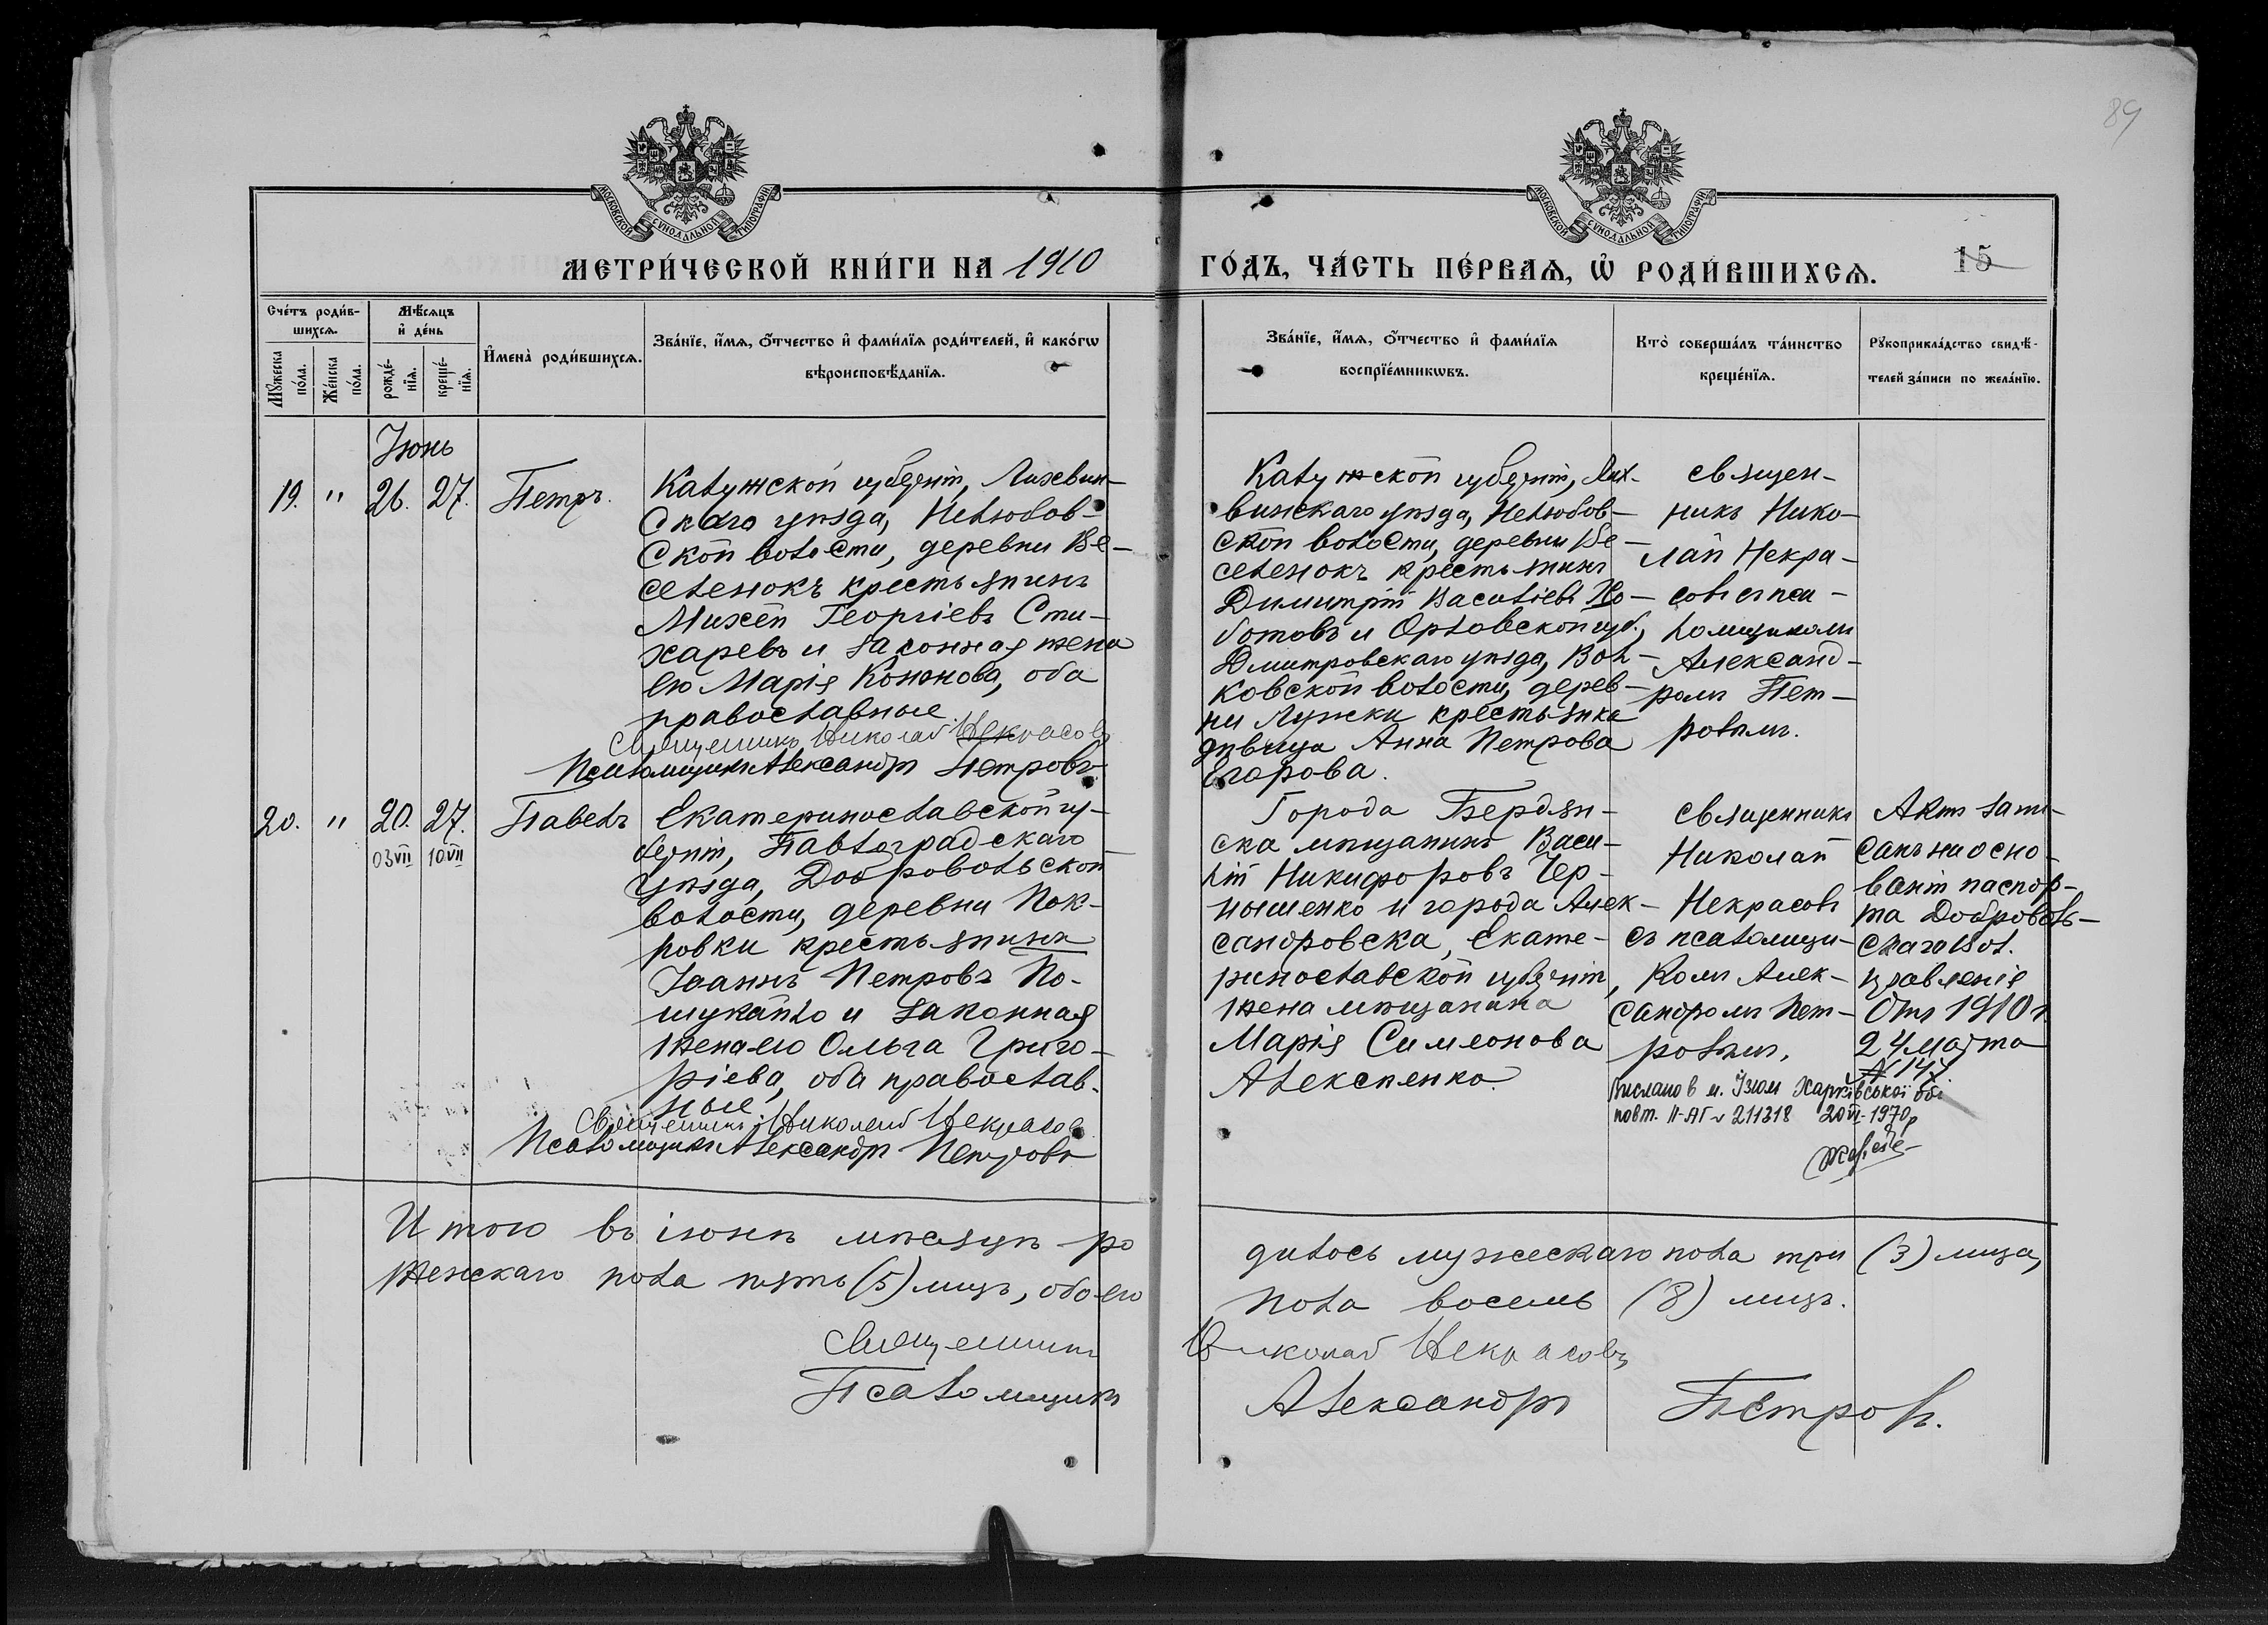 89
МОСКОВСКОЙ СѴНОДАЛЬНОЙ ТИПОГРАФІИ
МОСКОВСКОЙ СѴНОДАЛЬНОЙ ТИПОГРАФІИ
МЕТРИ́ЧЕСКОЙ КНИ́ГИ НА 1910
ГО́ДЪ, ЧА́СТЬ ПЕ́РВАѦ, Ѡ҆ РОДИ́ВШИХСѦ.
15
Сче́тъ роди́в-
шихсѧ.
Мꙋ́жеска
по́ла.
Же́нска
по́ла.
Мѣ́сѧцъ
и҆ де́нь
рожде́-
нїѧ.
креще́-
нїѧ.
И҆мена̀ роди́вшихсѧ.
Зва́нїе, и҆́мѧ, ѻ҆́тчество и҆ фами́лїѧ роди́телей, и҆ како́гѡ
вѣроисповѣ́данїѧ.
Зва́нїе, и҆́мѧ, ѻ҆́тчество и҆ фами́лїѧ
воспрїе́мникѡвъ.
Кто̀ соверша́лъ та́инство
креще́нїѧ.
Рꙋкоприкла́дство свидѣ́-
телей за́писи по жела́нїю.
Іюнь
19. " 26. 27. Петръ.
Калужской губерніи, Лихвин-
скаго уѣзда, Нелюбов-
ской волости, деревни Ве-
селенокъ крестьянинъ
Михеи Георгіевъ Сти-
харевъ и законная жена
его Марія Кононова, оба
православные.
Священникъ Николай Некрасовъ
Псаломщикъ Александръ Петровъ
Калужской губерніи, Лих-
винскаго уѣзда, Нелюбов-
ской волости, деревни Ве-
селенокъ крестьянинъ
Димитрій Васильевъ Хо-
ботовъ и Орловской губ.,
Дмитровскаго уѣзда, Вол-
ковской волости, дерев-
ни Лужки крестьянка
дѣвица Анна Петрова
Егорова.
Священ-
никъ Нико-
лай Некра-
совъ съ пса-
ломщикомъ
Александ-
ромъ Пет-
ровымъ.
20. " 20. 27. Павелъ
03 VII 10 VII
Екатеринославской гу-
берніи, Павлоградскаго
уѣзда, Добровольской
волости, деревни Пок-
ровки крестьянинъ
Іоаннъ Петровъ По-
шукайло и законная
жена его Ольга Григо-
ріева, оба православ-
ные.
Священникъ Николай Некрасовъ
Псаломщикъ Александръ Петровъ
Города Бердян-
ска мѣщанинъ Васи-
лій Никифоровъ Чер-
нышенко и города Алек-
сандровска, Екате-
ринославской губерніи,
жена мѣщанина
Марія Симеонова
Алексѣенко.
Священникъ
Николай
Некрасовъ
съ псаломщи-
комъ Алек-
сандромъ Пет-
ровымъ.
Актъ запи-
санъ на осно-
ваніи паспор-
та Доброволь-
скаго вол.
правленія
отъ 1910 г.
24 марта
№ 147.
Вислано в м. Ізюм Харківської обл.
повт. II-АГ № 211318 20 VI-1970р
Итого въ іюнѣ мѣсяцѣ ро
дилось мужескаго пола три (3) лица,
женскаго пола пять (5) лицъ, обоего
пола восемь (8) лицъ.
Священникъ
Николай Некрасовъ
Псаломщикъ
Александръ Петровъ.